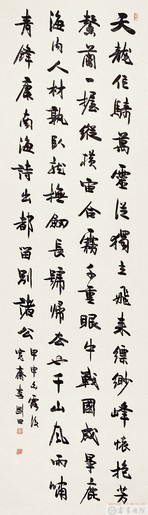 天龍作騎萬靈從獨立飛來縹緲峰懷抱芳
馨蘭一握縱橫宙合霧千重眼中戰國成爭鹿
海內人材孰臥龍撫劍長號歸去也千山風雨嘯
青鋒康南海詩出都留別諸公
甲申